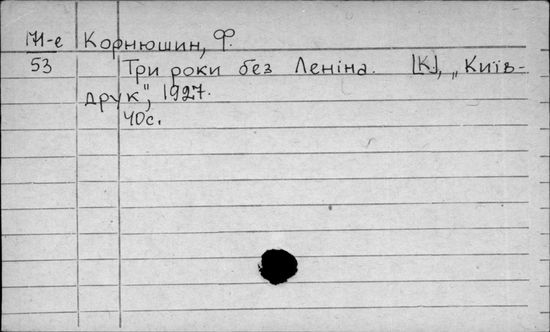 171-е Корнюшин, Ф.
53 Три роки без Леніна. [К], „Київ-
друк", 1927.
40с.